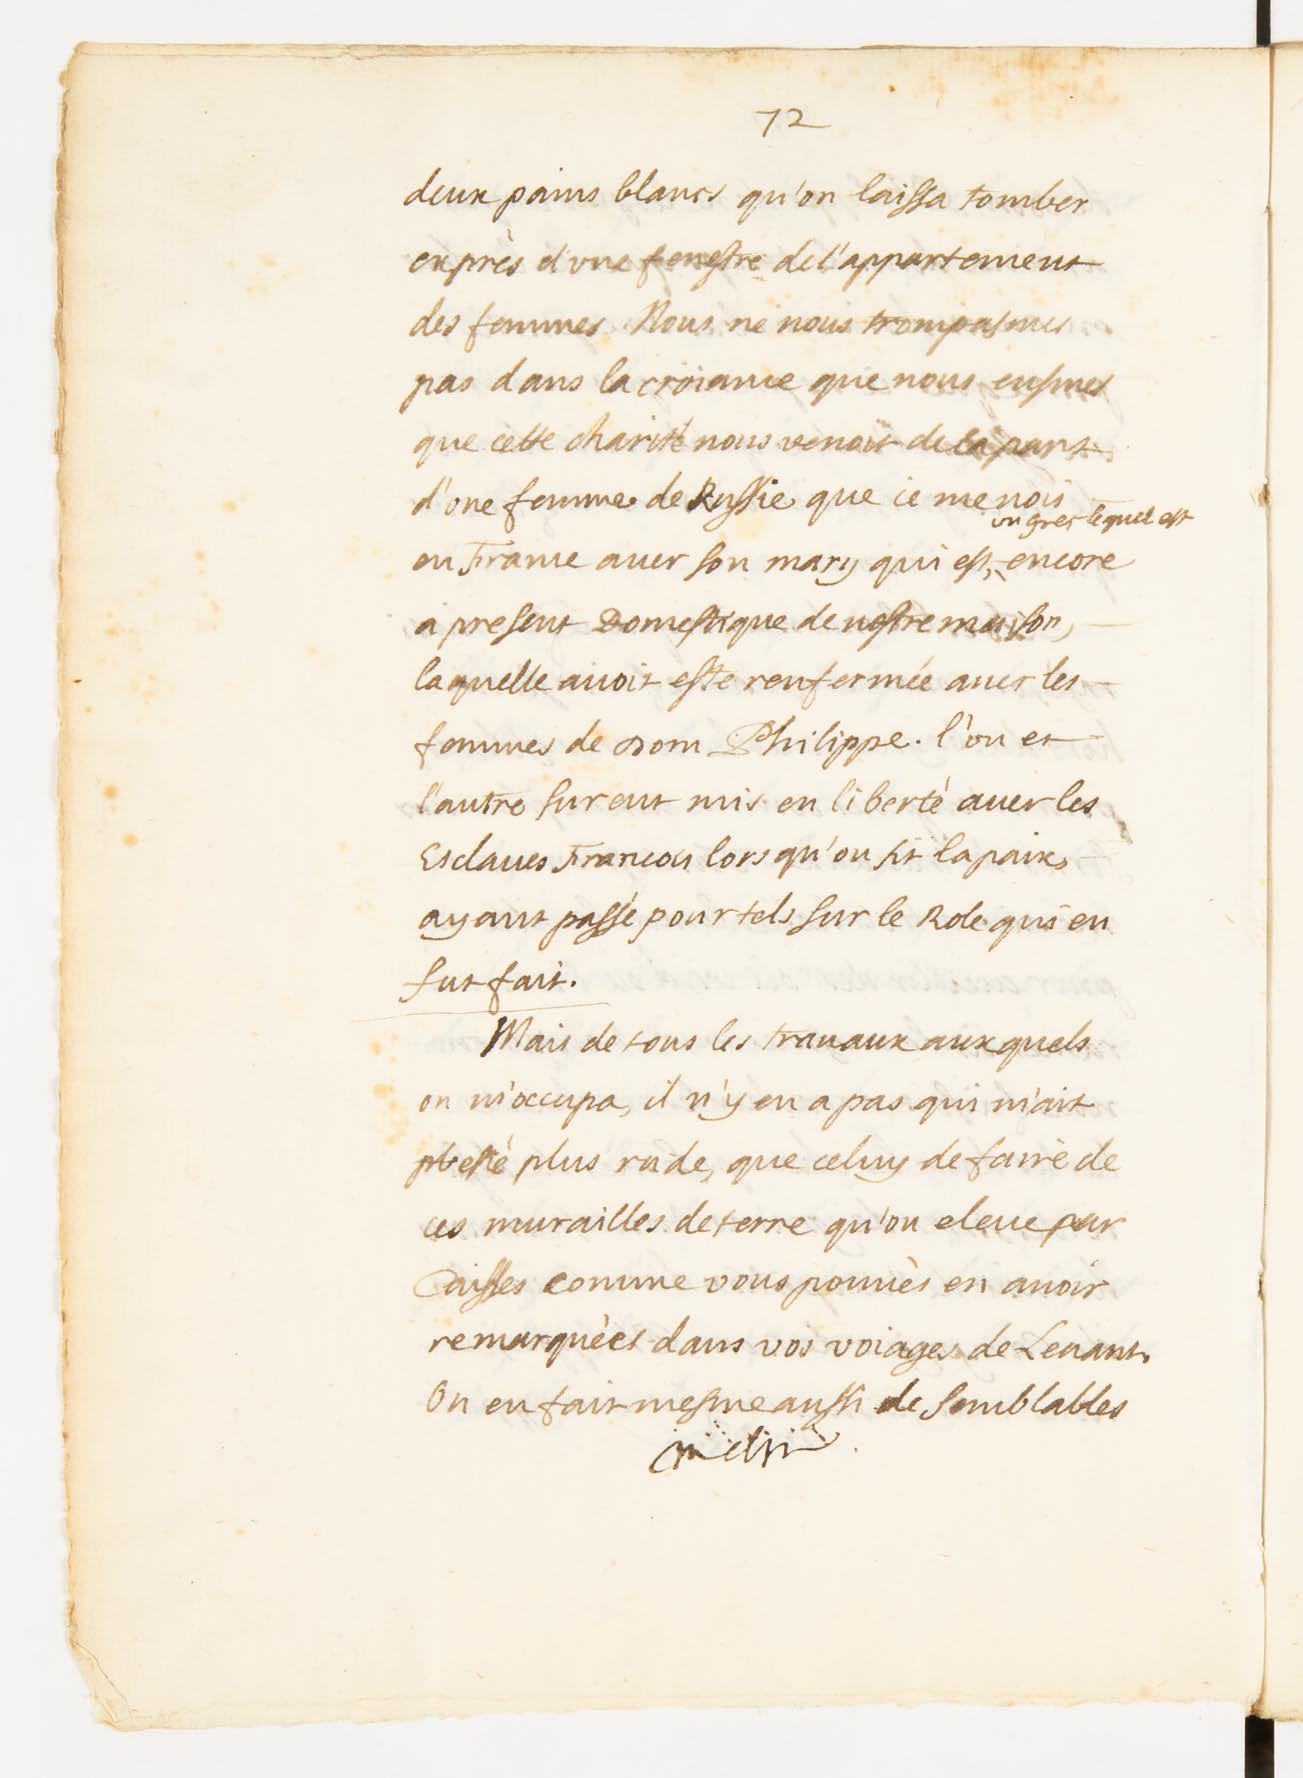 72
deux pains blancs qu'on laissa tomber
exprès d'vne fenestre de l'appartement
des femmes. Nous ne nous trompasmes
pas dans la croiance que nous eusmes
que cette charité nous venoit de la part
d'vne femme de Russie que ie menois
vn grec lequel est
en France auec son mary qui est, encore
a present Domestique de nostre maison,
laquelle auoit este renfermée auec les
femmes de Dom Philippe. l'vn et
l'autre furent mis en liberté auec les
Esclaues Francois lors qu'on fit la paix,
ayant passé pour tels sur le Role qui en
fut fait.
Mais de tous les trauaux auxquels
on m'occupa, il n'y en a pas qui m'ait
esté plus rude, que celuy de faire de
ces murailles de terre qu'on eleue par
Caisses comme vous pouuès en auoir
remarquées dans vos voiages de Leuant.
On en fait mesme aussi de semblables